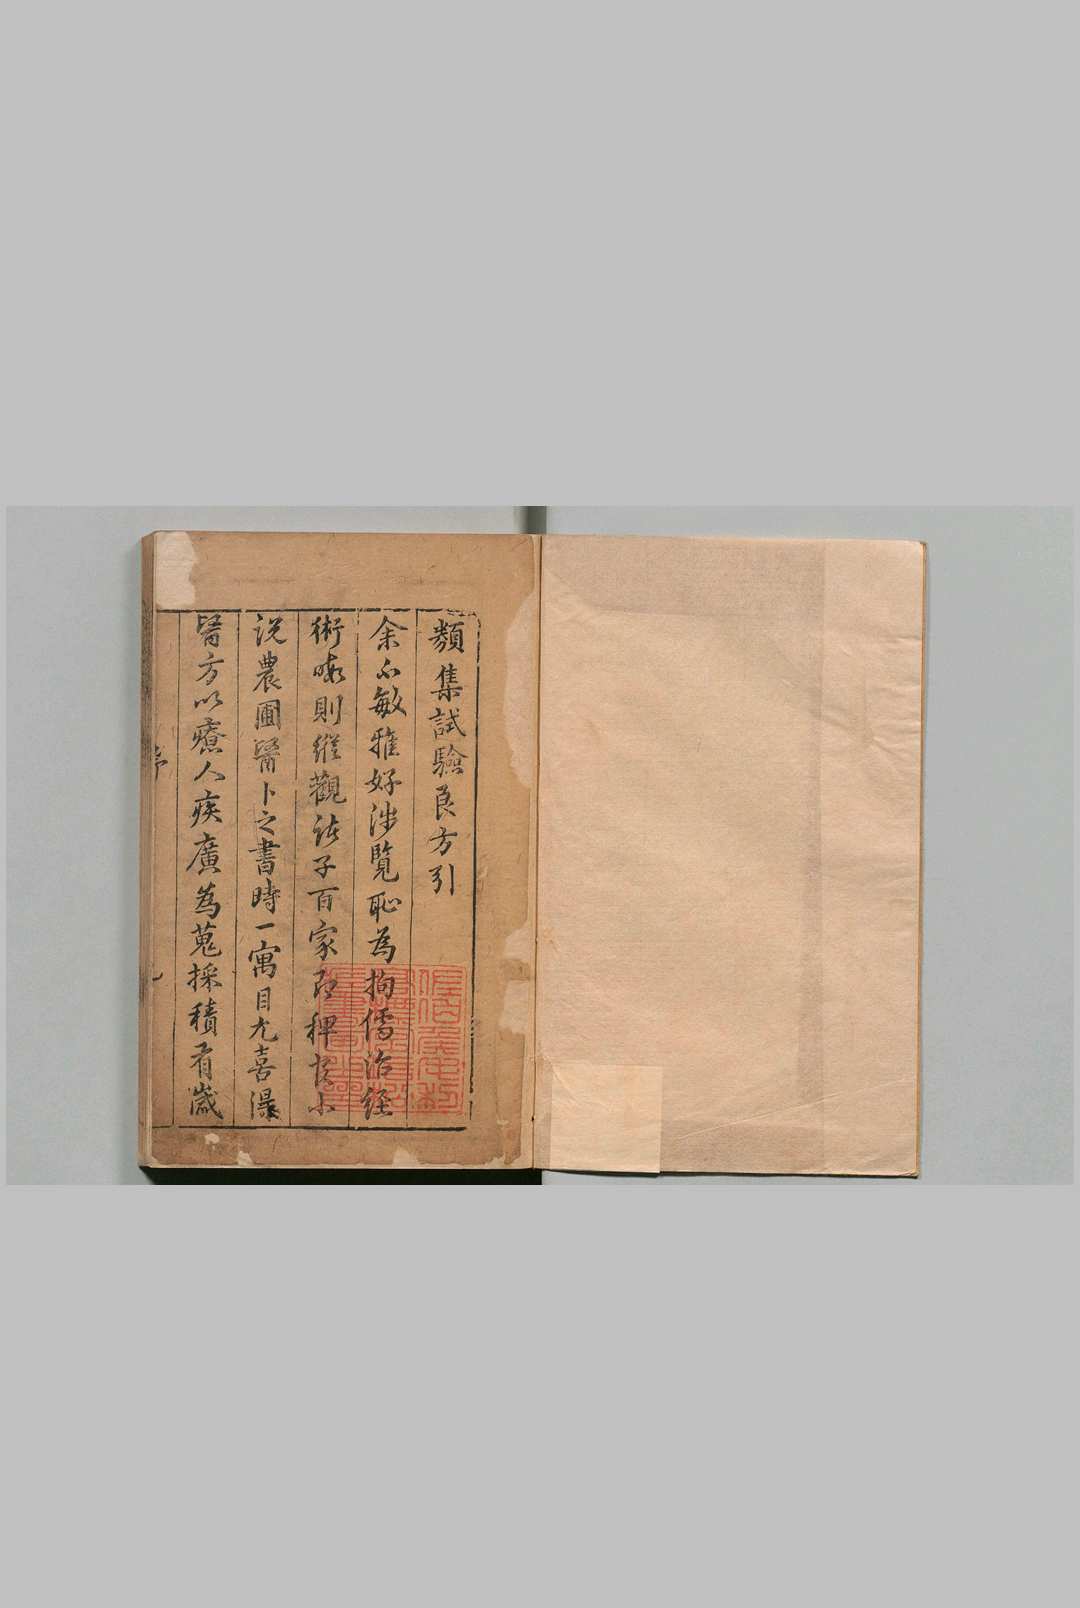 類集試驗良方引
余不敏雅好涉覽恥為拘儒治經
術暇則縱觀諸子百家即稗官小
說農圃醫卜之書時一寓目尤喜得
醫方以療人疾廣為蒐採積有歲
序